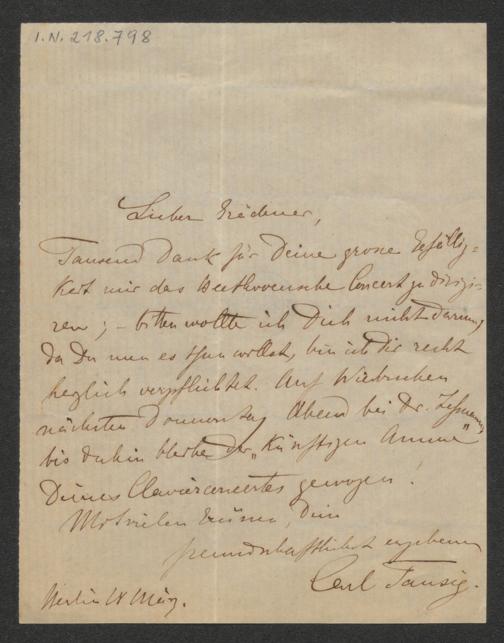 I.N. 218.798
Lieber
Tausend Dank für Deine grosse Gefällig-
keit mir das Beethovensche Concert zu dirigi-
ren; – bitten wollte ich Dich nicht darum,
da Du nun es thun willst, bin ich dir recht
herzlich verpflichtet. Auf Wiedersehen
nächsten Donnerstag Abend bei Dr.
bis dahin bleibe der „künftigen Amme"
Deines Clavierconcertes gewogen!
Mit vielen Grüssen, Dein
freundschaftlichst ergebener
Carl Tausig.
Berlin 18 März.